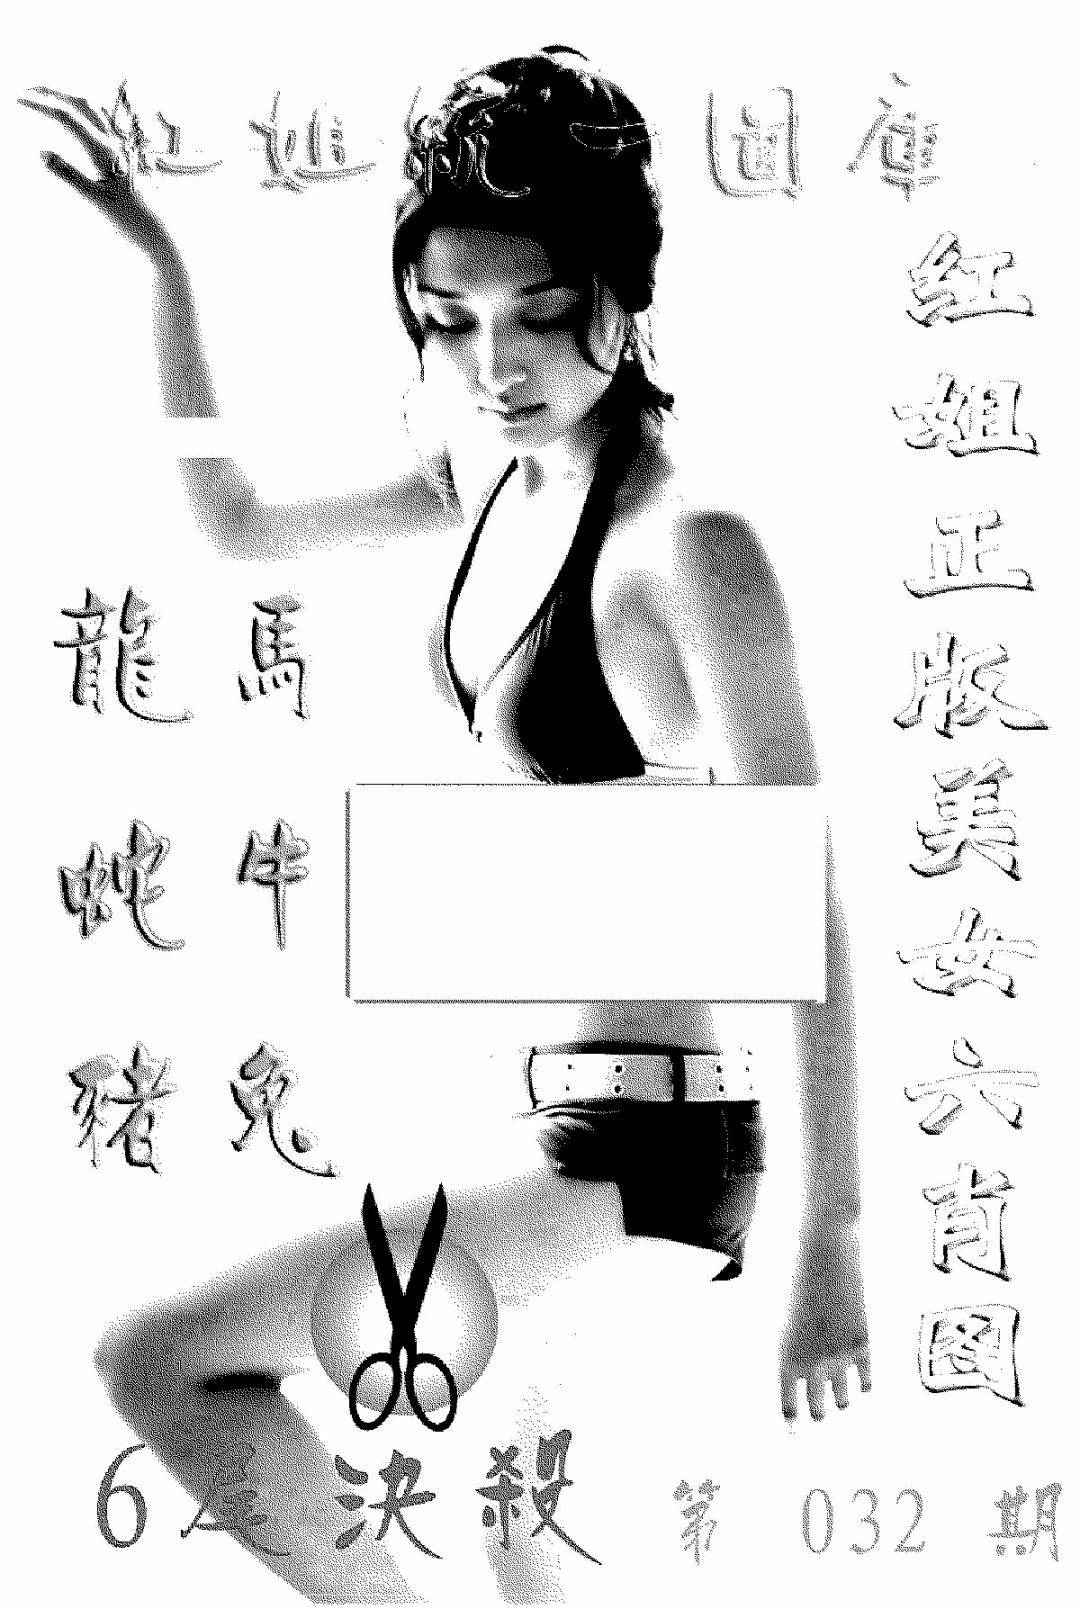 紅姐統一圖庫
紅姐正版美女六肖圖
龍 馬
蛇 牛
豬 兔
6尾決殺
第 032 期